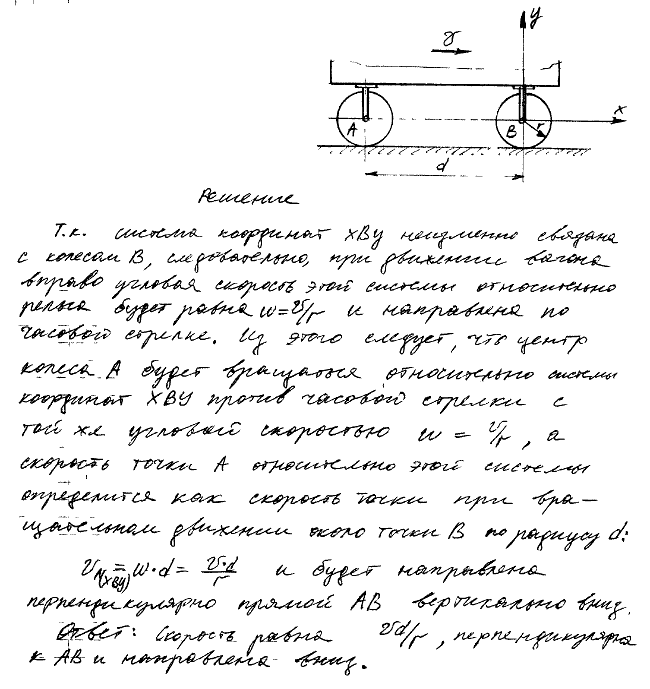 y
v
x
A
B
r
d
Решение
Т.к. система координат xBy неизменно связана
с колесом B, следовательно, при движении вагона
вправо угловая скорость этой системы относительно
рельса будет равна w=v/r и направлена по
часовой стрелке. Из этого следует, что центр
колеса A будет вращаться относительно системы
координат XBY против часовой стрелки с
той же угловой скоростью w = v/r, а
скорость точки A относительно этой системы
определится как скорость точки при вра-
щательном движении около точки B по радиусу d:
v_A(xBy) = w·d = v·d/r и будет направлена
перпендикулярно прямой AB вертикально вниз.
Ответ: Скорость равна vd/r, перпендикулярна
к AB и направлена вниз.